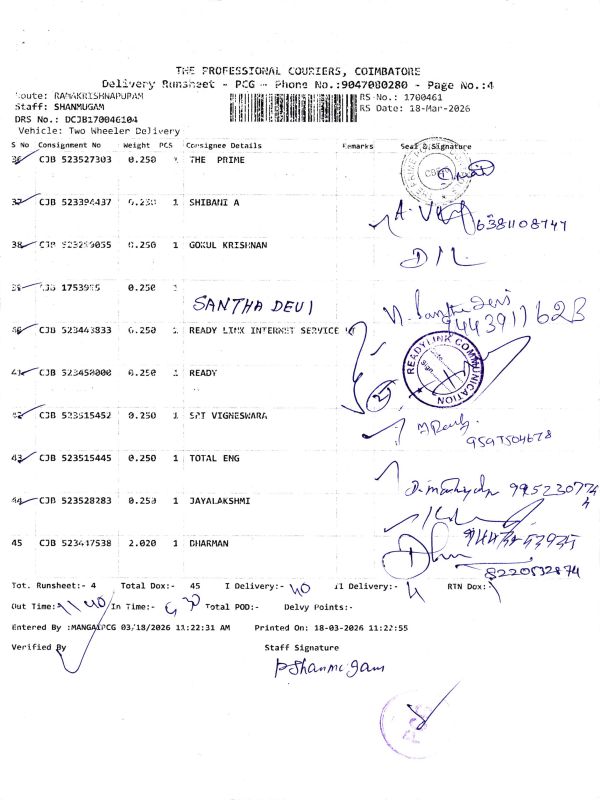 THE PROFESSIONAL COURIERS, COIMBATORE
Delivery Runsheet - PCG - Phone No.:9047080280 - Page No.:4
Route: RAMAKRISHNAPURAM
RS No.: 1700461
Staff: SHANMUGAM
RS Date: 18-Mar-2026
DRS No.: DCJB170046104
Vehicle: Two Wheeler Delivery
S No Consignment No Weight PCS Consignee Details Remarks Seal & Signature
36 CJB 523527303 0.250 THE PRIME
37 CJB 523394437 0.250 1 SHIBANI A
6381108747
38 CJB 0.250 1 GOKUL KRISHNAN
39 0.250 1
SANTHA DEVI
40 CJB 523443833 0.250 1 READY LINK INTERNET SERVICE
READYLINK COMMUNICATION
41 CJB 523450000 0.250 1 READY
42 CJB 523515452 0.250 1 SRI VIGNESWARA
9597504678
43 CJB 523515445 0.250 1 TOTAL ENG
44 CJB 523528283 0.250 1 JAYALAKSHMI
45 CJB 523417538 2.020 1 DHARMAN
8220832874
Tot. Runsheet:- 4 Total Dox:- 45 I Delivery:- 40 II Delivery:- 4 RTN Dox:-
Out Time:- 11 40 In Time:- 30 Total POD:- Delvy Points:-
Entered By :MANGAIPCG 03/18/2026 11:22:31 AM Printed On: 18-03-2026 11:22:55
Verified By Staff Signature
P Shanmugam